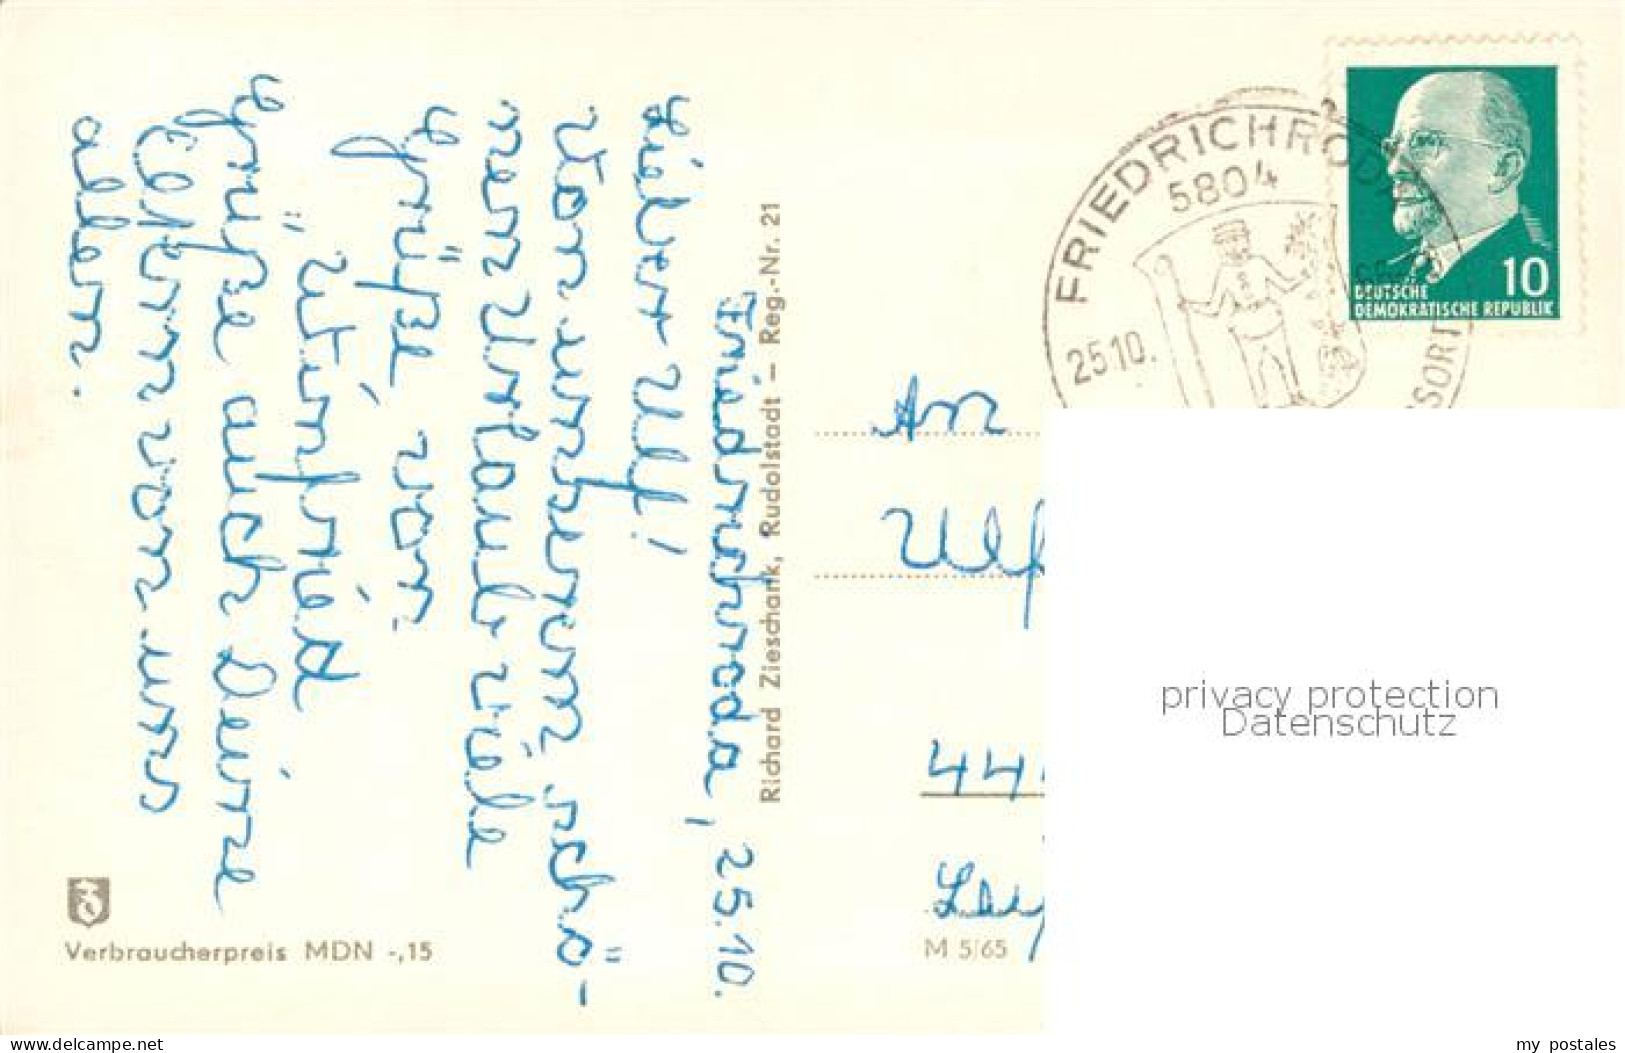 Friedrichroda, 25.10.
Lieber Ulf!
Von unserem schö-
nen Urlaub viele
Grüße von
Winfried
Grüße auch Deine
Eltern von uns
allen.
Verbraucherpreis MDN -,15
Richard Zieschank, Rudolstadt – Reg.-Nr. 21
M 5/65
FRIEDRICHRODA
5804
25.10.
SORT
10
DEUTSCHE
DEMOKRATISCHE REPUBLIK
An
Ulf
44
privacy protection
Datenschutz
delcampe.net
my_postales